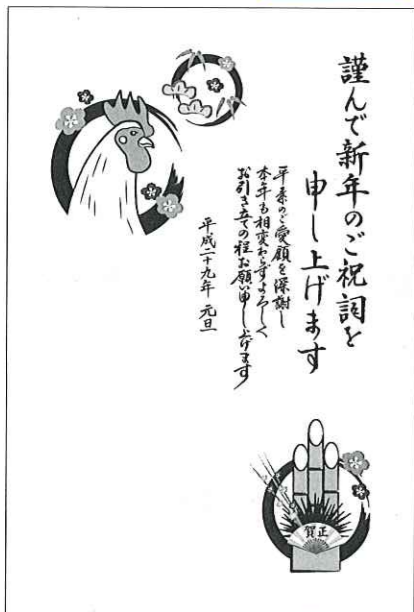 謹んで新年のご祝詞を
申し上げます
平素のご愛顧を深謝し
本年も相変わらずよろしく
お引き立ての程お願い申し上げます
平成二十九年 元旦
賀正